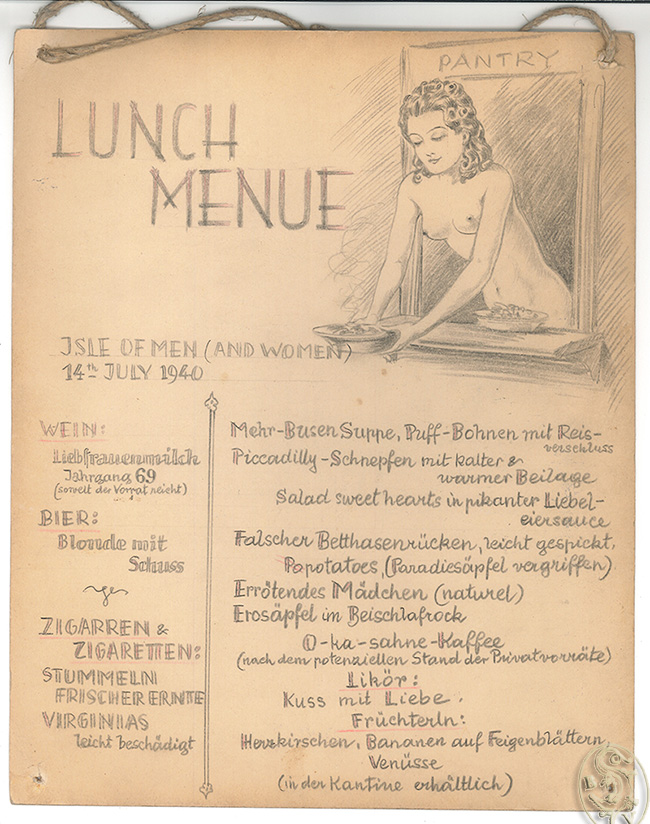 PANTRY
LUNCH
MENUE
ISLE OF MEN (AND WOMEN)
14th JULY 1940
WEIN:
Liebfrauenmilch
Jahrgang 69
(soweit der Vorrat reicht)
BIER:
Blonde mit
Schuss
ZIGARREN &
ZIGARETTEN:
STUMMELN
FRISCHER ERNTE
VIRGINIAS
leicht beschädigt
Mehr-Busen Suppe, Puff-Bohnen mit Reis-
verschluss
Piccadilly-Schnepfen mit kalter &
warmer Beilage
Salad sweet hearts in pikanter Liebel-
eiersauce
Falscher Betthasenrücken, leicht gespickt,
Papotatoes, (Paradiesäpfel vergriffen)
Errötendes Mädchen (naturel)
Erosäpfel im Beischlafrock
O-ka-sahne-Kaffee
(nach dem potenziellen Stand der Privatvorräte)
Likör:
Kuss mit Liebe.
Früchterln:
Herzkirschen, Bananen auf Feigenblättern,
Venüsse
(in der Kantine erhältlich)